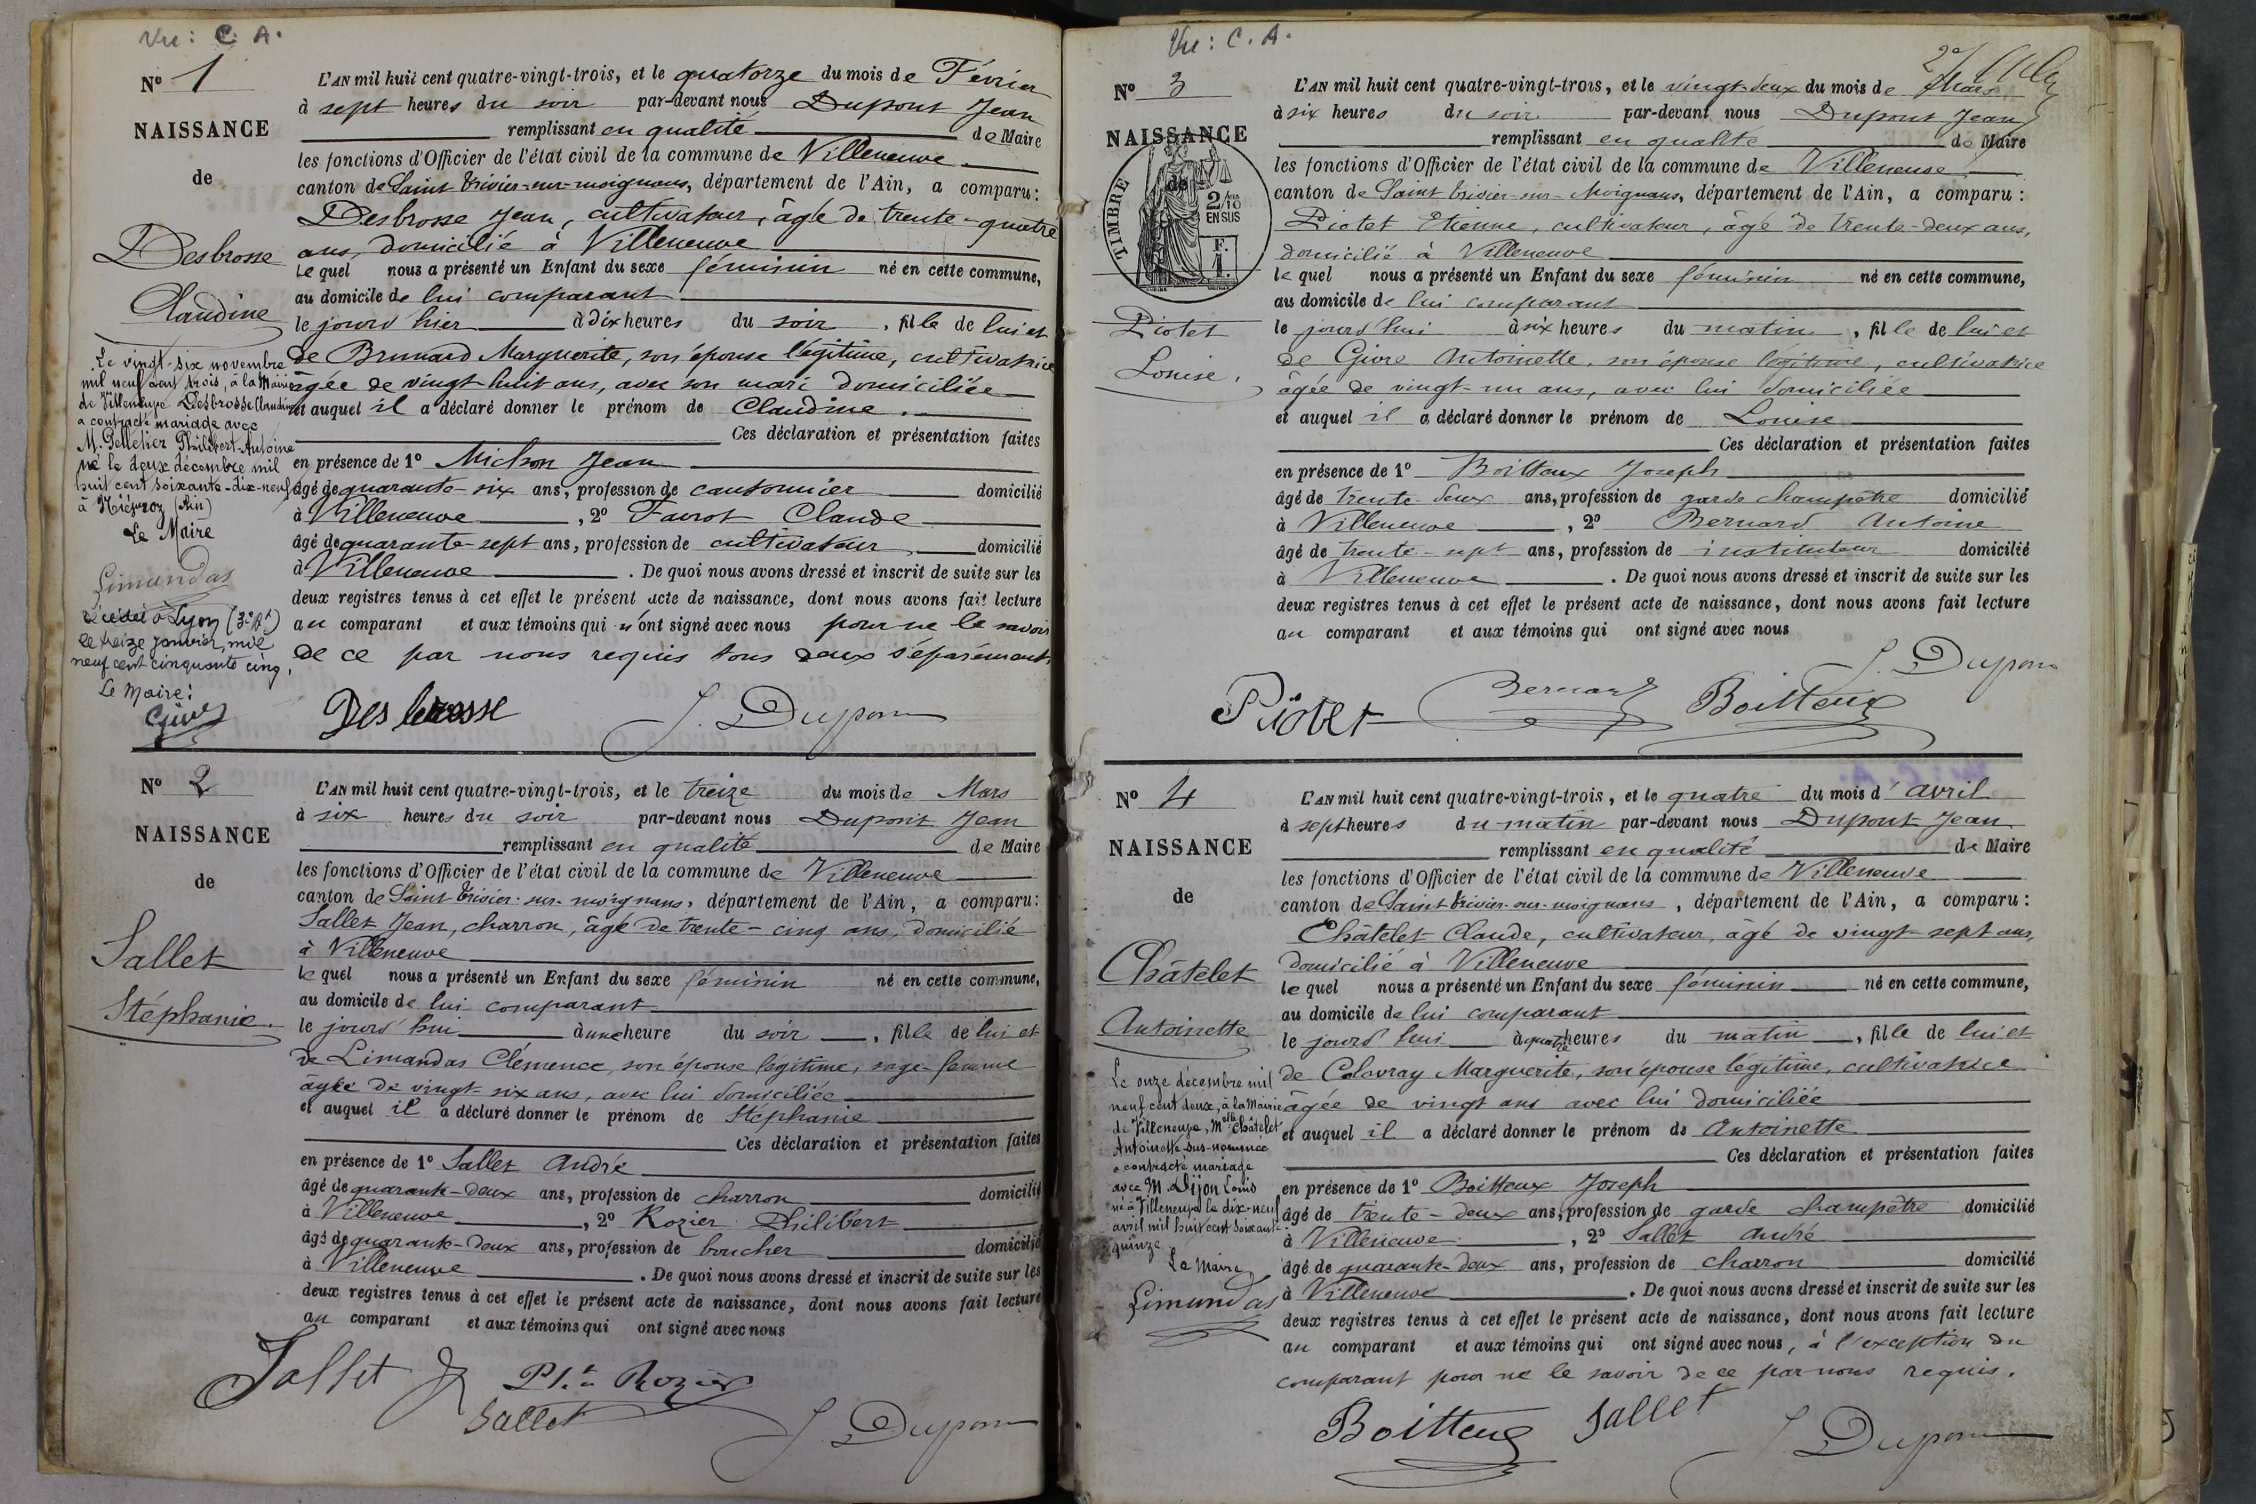 Vu : C. A.
N° 1
NAISSANCE
de
Desbrosse
Claudine
Le vingt-six novembre
mil neuf cent trois, à la Mairie
de Villeneuve Desbrosse Claudine
a contracté mariage avec
M. Pelletier Philibert-Antoine
né le deux décembre mil
huit cent soixante-dix-neuf
à (Ain)
Le Maire
Limandas
Décédée à Lyon (3e Art)
le treize janvier, mil
neuf cent cinquante cinq.
Le Maire :
L'AN mil huit cent quatre-vingt-trois, et le quatorze du mois de Février
à sept heures du soir par-devant nous Dupont Jean
remplissant en qualité de Maire
les fonctions d'Officier de l'état civil de la commune de Villeneuve
canton de Saint Trivier-sur-moignans, département de l'Ain, a comparu :
Desbrosse Jean, cultivateur, âgé de trente-quatre
ans, domicilié à Villeneuve
Le quel nous a présenté un Enfant du sexe féminin né en cette commune,
au domicile de lui comparant
le jourd'hier à dix heures du soir, fille de lui et
de Brunard Marguerite, son épouse légitime, cultivatrice
âgée de vingt-huit ans, avec son mari domiciliée
et auquel il a déclaré donner le prénom de Claudine.
Ces déclaration et présentation faites
en présence de 1° Michon Jean
âgé de quarante-six ans, profession de cantonnier domicilié
à Villeneuve, 2° Favrot Claude
âgé de quarante-sept ans, profession de cultivateur domicilié
à Villeneuve. De quoi nous avons dressé et inscrit de suite sur les
deux registres tenus à cet effet le présent acte de naissance, dont nous avons fait lecture
au comparant et aux témoins qui n'ont signé avec nous pour ne le savoir
de ce par nous requis tous deux séparément
Desbrosse J. Dupont
N° 2
NAISSANCE
de
Sallet
Stéphanie.
L'AN mil huit cent quatre-vingt-trois, et le treize du mois de Mars
à six heures du soir par-devant nous Dupont Jean
remplissant en qualité de Maire
les fonctions d'Officier de l'état civil de la commune de Villeneuve
canton de Saint Trivier-sur-moignans, département de l'Ain, a comparu :
Sallet Jean, charron, âgé de trente-cinq ans, domicilié
à Villeneuve
le quel nous a présenté un Enfant du sexe féminin né en cette commune,
au domicile de lui comparant
le jourd'hui à une heure du soir, fille de lui et
de Limandas Clémence, son épouse légitime, sage-femme
âgée de vingt-six ans, avec lui domiciliée
et auquel il a déclaré donner le prénom de Stéphanie
Ces déclaration et présentation faites
en présence de 1° Sallet André
âgé de quarante-deux ans, profession de charron domicilié
à Villeneuve, 2° Rozier Philibert
âgé de quarante-deux ans, profession de boucher domicilié
à Villeneuve. De quoi nous avons dressé et inscrit de suite sur les
deux registres tenus à cet effet le présent acte de naissance, dont nous avons fait lecture
au comparant et aux témoins qui ont signé avec nous
Sallet Rozier
Sallet J. Dupont
Vu : C. A.
N° 3
NAISSANCE
de
TIMBRE
2/10
EN SUS
F.
1.
Piotet
Louise.
L'AN mil huit cent quatre-vingt-trois, et le vingt-deux du mois de Mars
à six heures du soir par-devant nous Dupont Jean
remplissant en qualité de Maire
les fonctions d'Officier de l'état civil de la commune de Villeneuve
canton de Saint Trivier-sur-Moignans, département de l'Ain, a comparu :
Piotet Etienne, cultivateur, âgé de trente-deux ans,
domicilié à Villeneuve
le quel nous a présenté un Enfant du sexe féminin né en cette commune,
au domicile de lui comparant
le jourd'hui à six heures du matin, fille de lui et
de Givre Antoinette, son épouse légitime, cultivatrice
âgée de vingt-un ans, avec lui domiciliée
et auquel il a déclaré donner le prénom de Louise
Ces déclaration et présentation faites
en présence de 1° Boitteux Joseph
âgé de trente-deux ans, profession de garde champêtre domicilié
à Villeneuve, 2° Bernard Antoine
âgé de trente-sept ans, profession de instituteur domicilié
à Villeneuve. De quoi nous avons dressé et inscrit de suite sur les
deux registres tenus à cet effet le présent acte de naissance, dont nous avons fait lecture
au comparant et aux témoins qui ont signé avec nous
J. Dupont
Piotet Bernard Boitteux
N° 4
NAISSANCE
de
Châtelet
Antoinette
Le onze décembre mil
neuf cent deux, à la Mairie
de Villeneuve, Melle Châtelet
Antoinette sus-nommée
a contracté mariage
avec M. Dijon Louis
né à Villeneuve le dix-neuf
avril mil huit cent soixante-
quinze
Le Maire
Limandas
L'AN mil huit cent quatre-vingt-trois, et le quatre du mois d'avril
à sept heures du matin par-devant nous Dupont Jean
remplissant en qualité de Maire
les fonctions d'Officier de l'état civil de la commune de Villeneuve
canton de Saint Trivier-sur-moignans, département de l'Ain, a comparu :
Châtelet Claude, cultivateur, âgé de vingt-sept ans,
domicilié à Villeneuve
le quel nous a présenté un Enfant du sexe féminin né en cette commune,
au domicile de lui comparant
le jourd'hui à quatre heures du matin, fille de lui et
de Colovray Marguerite, son épouse légitime, cultivatrice
âgée de vingt ans avec lui domiciliée
et auquel il a déclaré donner le prénom de Antoinette
Ces déclaration et présentation faites
en présence de 1° Boitteux Joseph
âgé de trente-deux ans, profession de garde champêtre domicilié
à Villeneuve, 2° Sallet André
âgé de quarante-deux ans, profession de charron domicilié
à Villeneuve. De quoi nous avons dressé et inscrit de suite sur les
deux registres tenus à cet effet le présent acte de naissance, dont nous avons fait lecture
au comparant et aux témoins qui ont signé avec nous, à l'exception du
comparant pour ne le savoir de ce par nous requis.
Boitteux Sallet J. Dupont